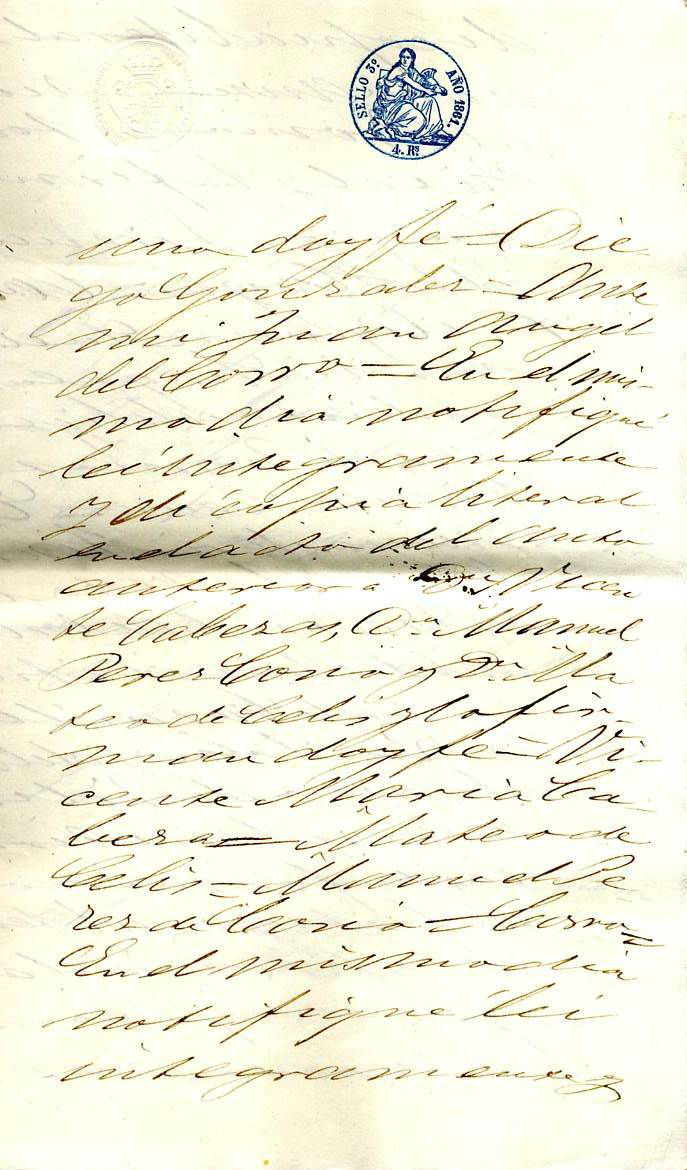 SELLO 3º AÑO 1861.
4. Rs
uno doy fé = Die
go Gonzalez = Ante
mi Juan Angel
del Corro = En el mis-
mo dia notifiqué
leí integramente
y dí copia literal
en el acto del auto
anterior a Dn Vicen
te Cabezas, Dn Manuel
Perez Cosio y Dn Ma
teo de Celis y lo fir-
man doy fé = Vi-
cente Maria Ca-
beza = Mateo de
Celis = Manuel Pe
rez de Cosio = Corro =
En el mismo dia
notifiqué leí
integramente y